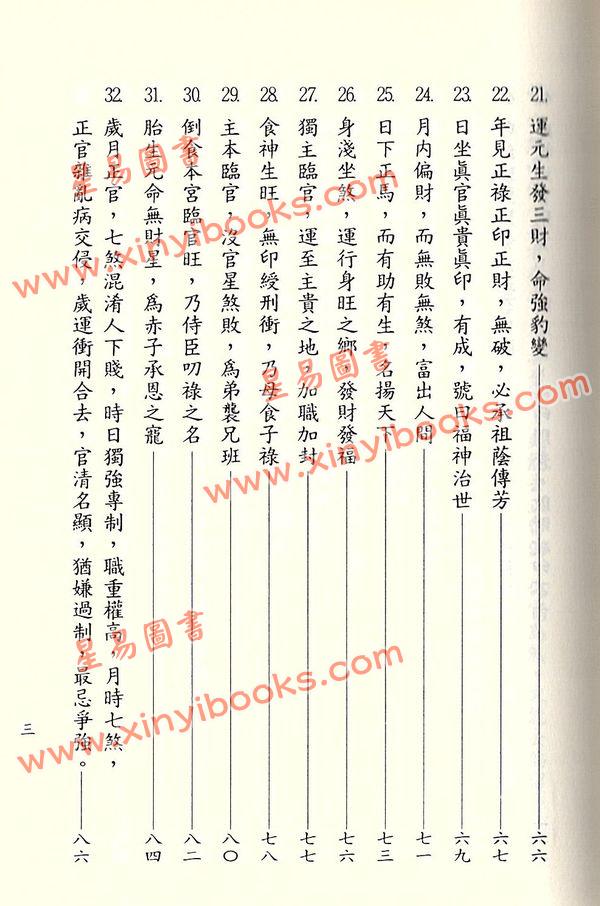 21. 運元生發三財，命強豹變——六六
22. 年見正祿正印正財，無破，必承祖蔭傳芳——六七
23. 日坐眞官眞貴眞印，有成，號曰福神治世——六九
24. 月内偏財，而無敗無煞，富出人間——七一
25. 日下正馬，而有助有生，名揚天下——七三
26. 身淺坐煞，運行身旺之鄉，發財發福——七六
27. 獨主臨官，運至主貴之地，加職加封——七七
28. 食神生旺，無印綬刑衝，乃母食子祿——七八
29. 主本臨官，沒官星煞敗，爲弟襲兄班——八〇
30. 倒食本宮臨官旺，乃侍臣叨祿之名——八二
31. 胎生元命無財星，爲赤子承恩之寵——八四
32. 歲月正官，七煞混淆人下賤，時日獨強專制，職重權高，月時七煞，
正官雜亂病交侵，歲運衝開合去，官清名顯，猶嫌過制，最忌爭強。——八六
三
星易圖書
www.xinyibooks.com
星易圖書
www.xinyibooks.com
星易圖書
www.xinyibooks.com